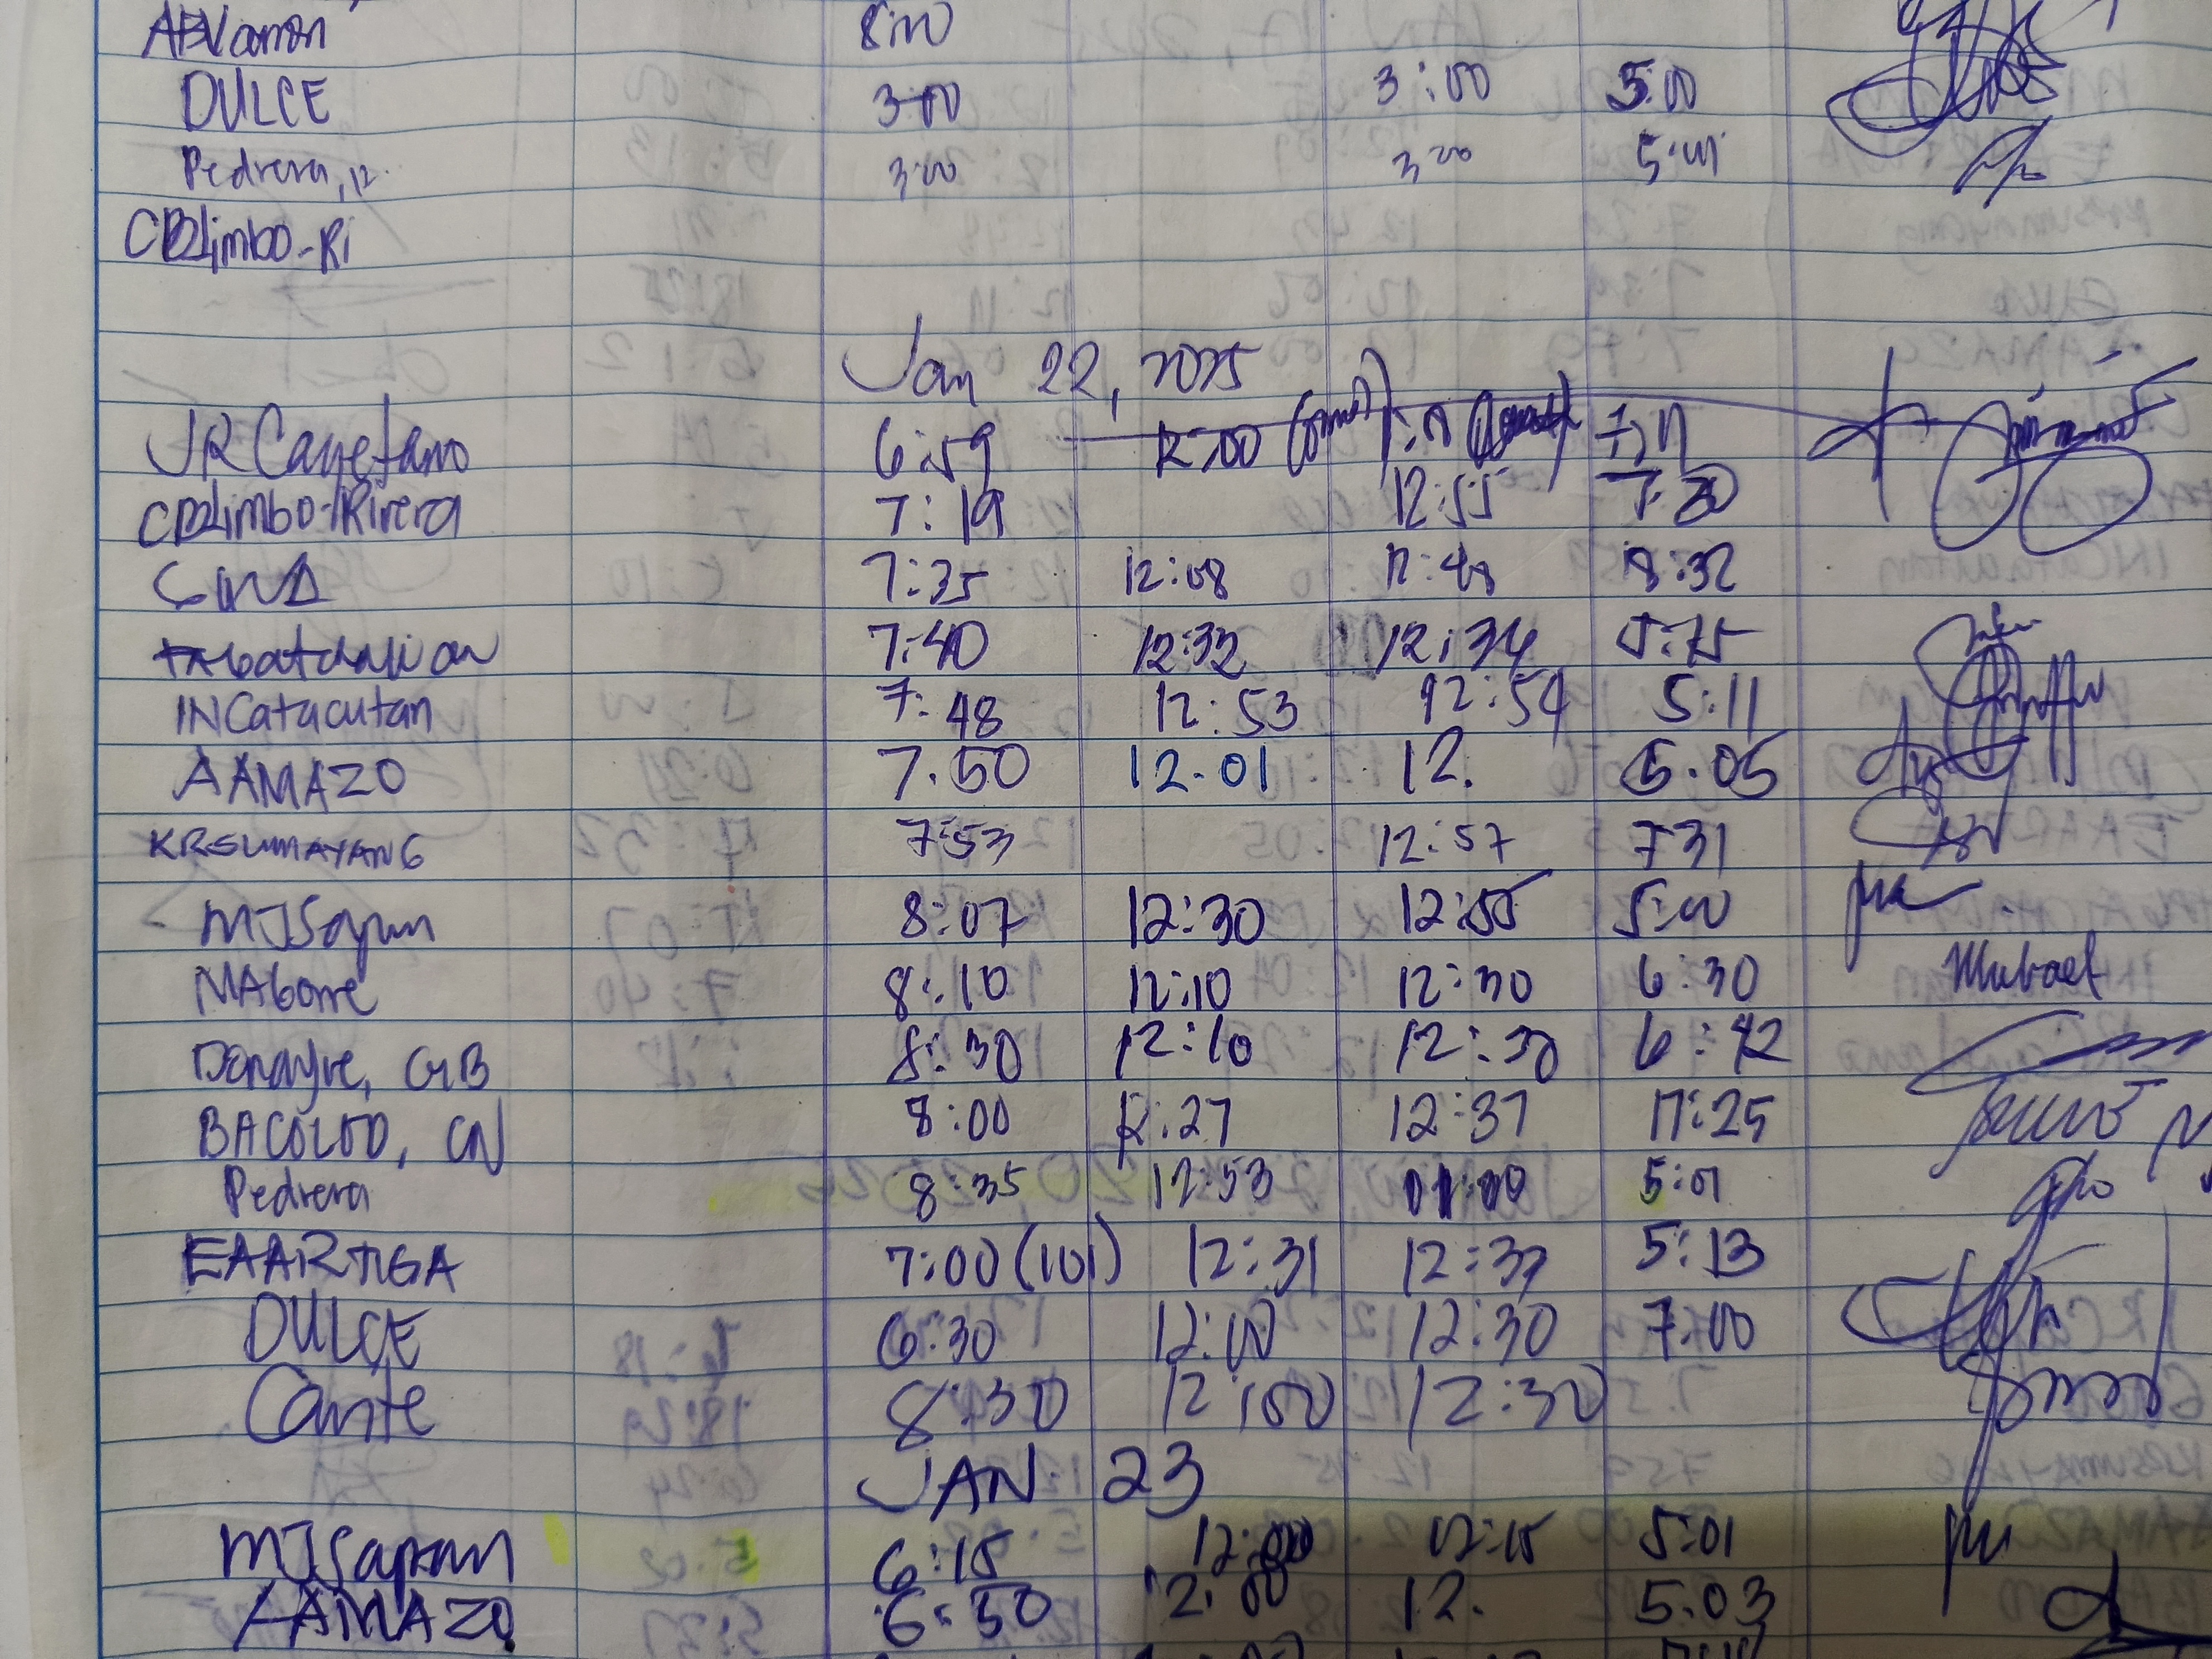 DULCE 3:00 3:00 5:00
Pedrera, 12. 3:00 3:00 5:01
CBLimbo-Ri
Jan 22, 2025
JR Cayetano 6:59 12:00
CBLimbo-Rivera 7:19 12:55 7:20
7:35 12:08 12:48 18:32
7:40 12:32 12:34
INCatacutan 7:48 12:53 12:54 5:11
AAMAZO 7.50 12.01 12. 5.05
KRSUMAYANG 7:53 12:57 7 31
MJSapun 8:07 12:30 12:55 5:00
8:10 12:10 12:30 6:30
Donayre, GB 8:30 12:10 12:30 6:42
BACOLOD, CN 8:00 12:27 12:37 17:25
Pedrera 8:35 12:53 01:00 5:01
EAARTIGA 7:00 (101) 12:31 12:37 5:13
DULCE 6:30 12:00 12:30 7:00
Cante 8:30 12:00 12:30
JAN 23
MJSapun 6:15 12:00 12:15 5:01
AAMAZO 6:50 12.00 12. 5.03